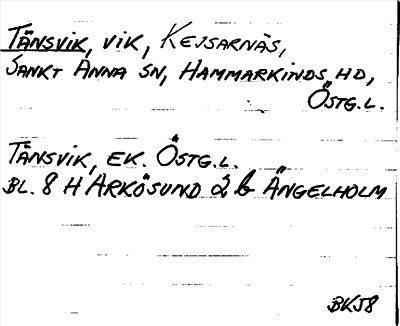 TÄNSVIK, VIK, KEJSARNÄS,
SANKT ANNA SN, HAMMARKINDS HD,
ÖSTG.L.
TÄNSVIK, EK. ÖSTG.L.
BL. 8 H ARKÖSUND 2 b ÄNGELHOLM
BKJ8